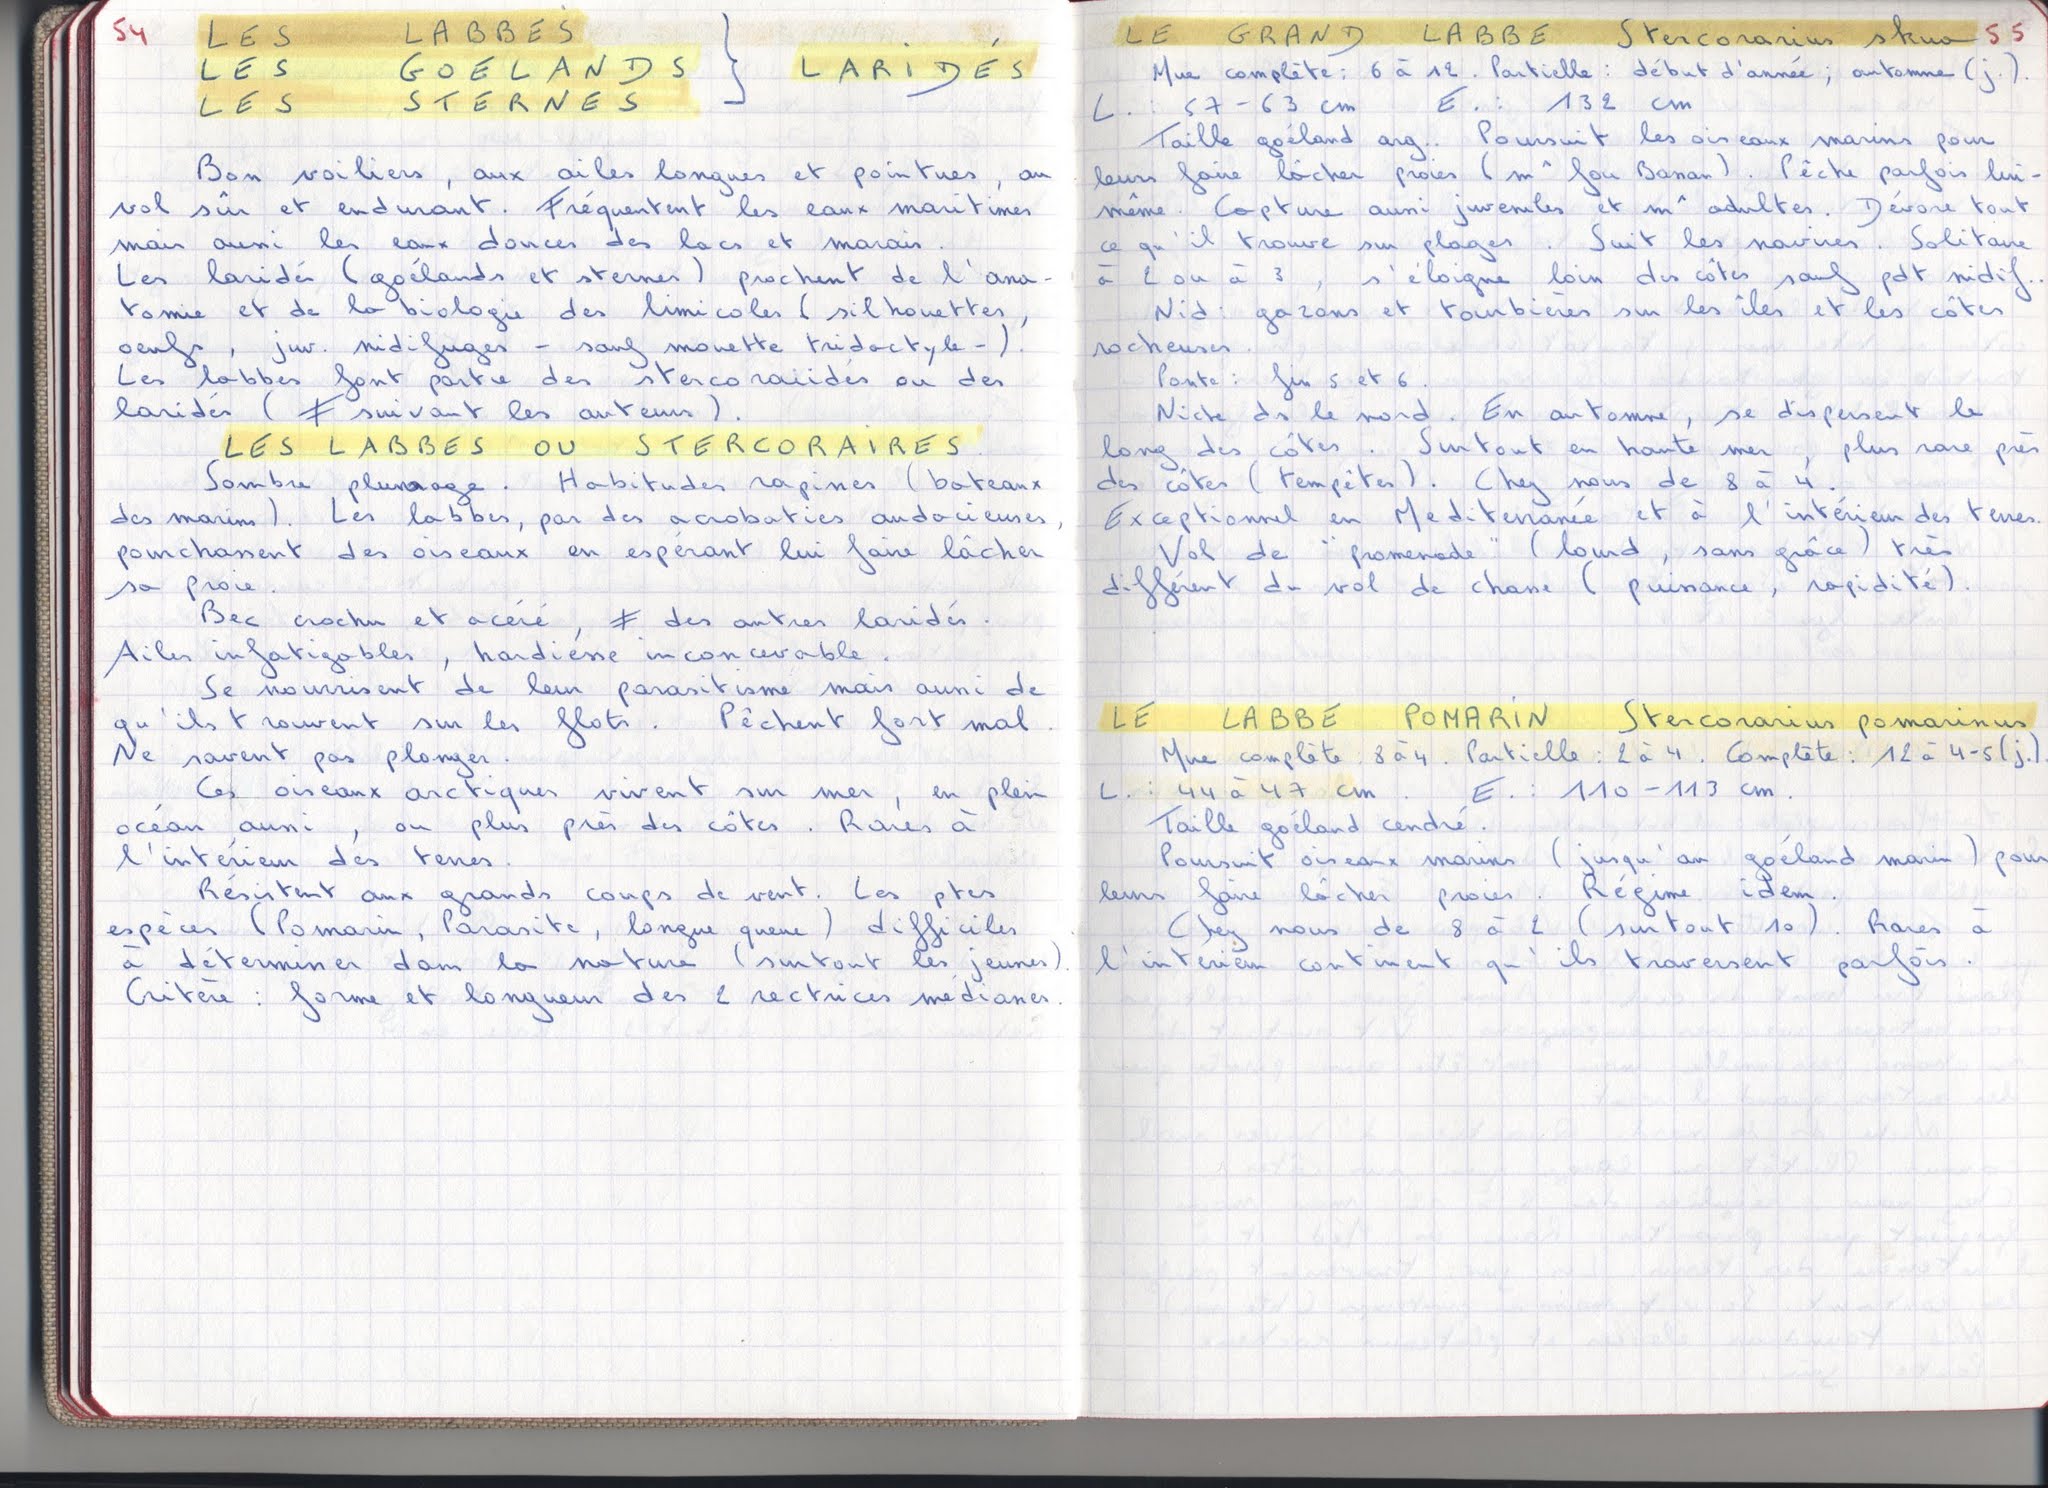 54
LES LABBES
LES GOELANDS } LARIDÉS
LES STERNES
Bon voiliers, aux ailes longues et pointues, au
vol sûr et endurant. Fréquentent les eaux maritimes
mais aussi les eaux douces des lacs et marais.
Les laridés (goélands et sternes) prochent de l'ana-
tomie et de la biologie des limicoles (silhouettes,
oeufs, juv. nidifuges - sauf mouette tridactyle -).
Les labbes font partie des stercoraiidés ou des
laridés (≠ suivant les auteurs).
LES LABBES OU STERCORAIRES
Sombre plumage. Habitudes rapines (bateaux
des marins). Les labbes, par des acrobaties audacieuses,
pourchassent des oiseaux en espérant lui faire lâcher
sa proie.
Bec crochu et acéré, ≠ des autres laridés.
Ailes infatigables, hardiesse inconcevable.
Se nourrisent de leur parasitisme mais aussi de
qu'ils trouvent sur les flots. Pêchent fort mal.
Ne savent pas plonger.
Ces oiseaux arctiques vivent sur mer, en plein
océan aussi, ou plus près des côtes. Rares à
l'intérieur des terres.
Résistent aux grands coups de vent. Les ptes
espèces (Pomarin, Parasite, longue queue) difficiles
à déterminer dans la nature (surtout les jeunes).
Critère : forme et longueur des 2 rectrices médianes.
LE GRAND LABBE Stercorarius skua 55
Mue complète : 6 à 12. Partielle : début d'année ; automne (j.).
L. : 57-63 cm E. : 132 cm
Taille goéland arg.. Poursuit les oiseaux marins pour
leurs faire lâcher proies (m^ fou Bassan). Pêche parfois lui-
même. Capture aussi juvéniles et m^ adultes. Dévore tout
ce qu'il trouve sur plages. Suit les navires. Solitaire
à 2 ou à 3, s'éloigne loin des côtes sauf pdt nidif..
Nid : gazons et tourbières sur les îles et les côtes
rocheuses.
Ponte : fin 5 et 6.
Niche ds le nord. En automne, se dispersent le
long des côtes. Surtout en haute mer, plus rare près
des côtes (tempêtes). Chez nous de 8 à 4.
Exceptionnel en Mediterranée et à l'intérieur des terres.
Vol de "promenade" (lourd, sans grâce) très
différent du vol de chasse (puissance, rapidité).
LE LABBE POMARIN Stercorarius pomarinus
Mue complète : 8 à 4. Partielle : 2 à 4. Complète : 12 à 4-5 (j.).
L. : 44 à 47 cm. E. : 110-113 cm.
Taille goéland cendré.
Poursuit oiseaux marins (jusqu'au goéland marin) pour
leurs faire lâcher proies. Régime idem.
Chez nous de 8 à 2 (surtout 10). Rares à
l'intérieur continent qu'ils traversent parfois.